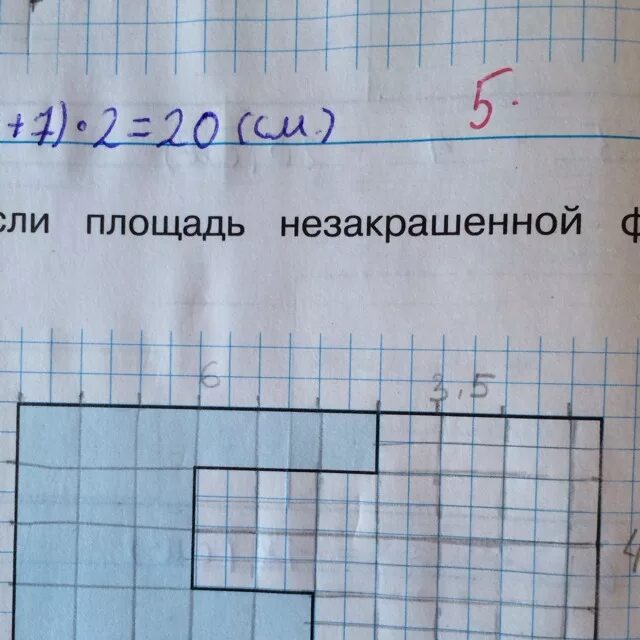 +7)·2=20 (см.)
5.
сли площадь незакрашенной ф
6
3,5
4